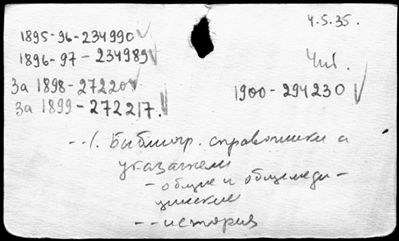 4.5.35.
1895-96-234990
1896-97-234989
Чит.
За 1898-27220
За 1899-272217.
1900-294230
--1. Библиогр. справочники и
указатели
-общие и общемеди-
цинские
--история